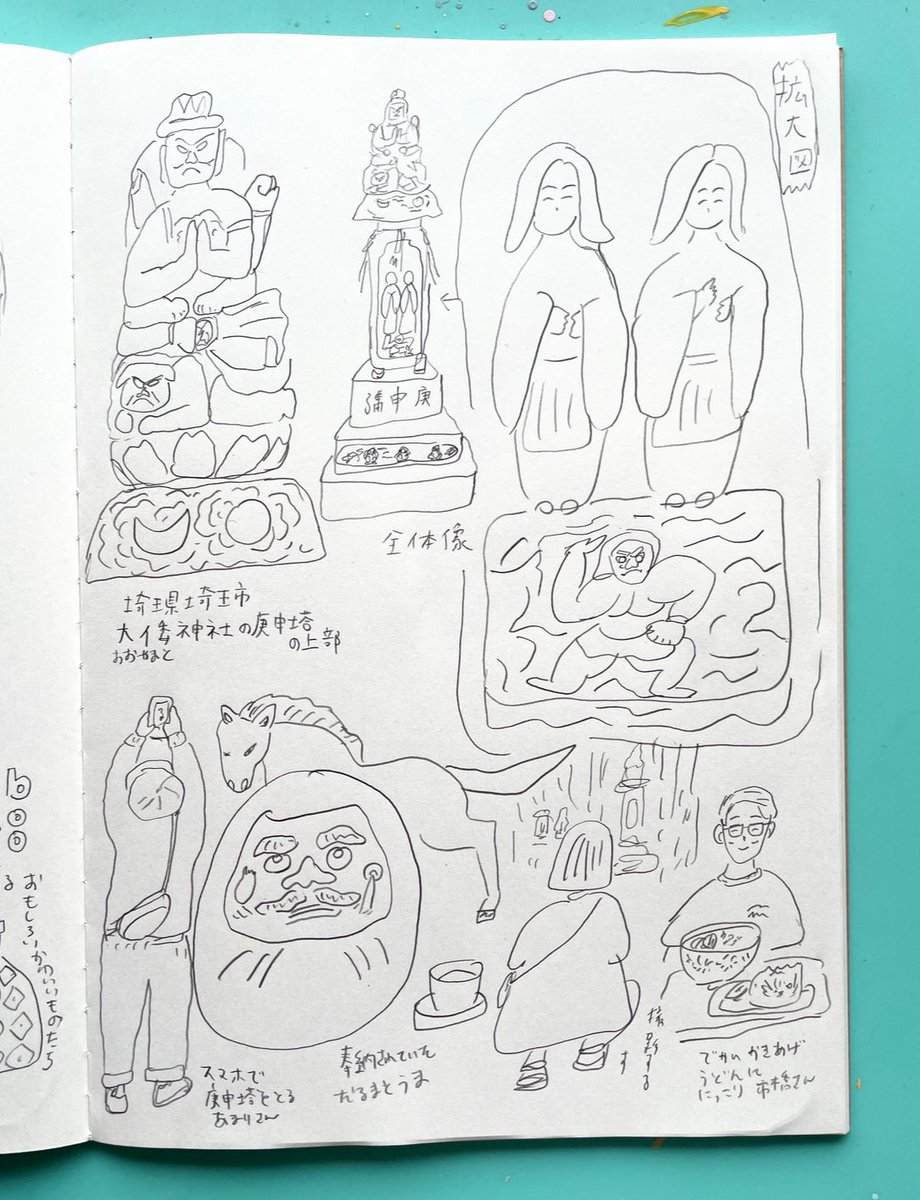 拡大図
講申庚
全体像
埼玉県埼玉市
大倭神社の庚申塔
の上部
おおやまと
おもしろいかわいいものたち
る
スマホで
庚申塔をとる
奉納されていた
だるまとうま
撮影する
す
でかいかきあげ
うどんに
にっこり 市橋さん